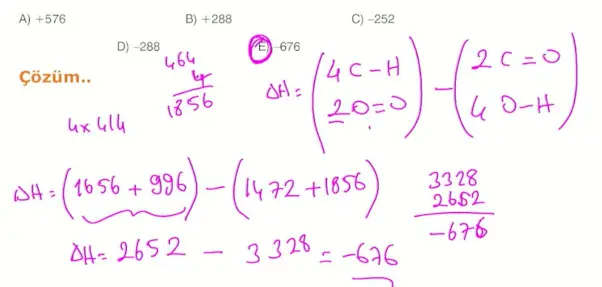 A) +576 B) +288 C) –252
D) –288 E) –676
Çözüm..
464
4
1856
4x414
ΔH = (4C–H 2O=O) – (2C=O 4O–H)
ΔH = (1656 + 996) – (1472 + 1856)
3328
2652
-676
ΔH = 2652 – 3328 = -676